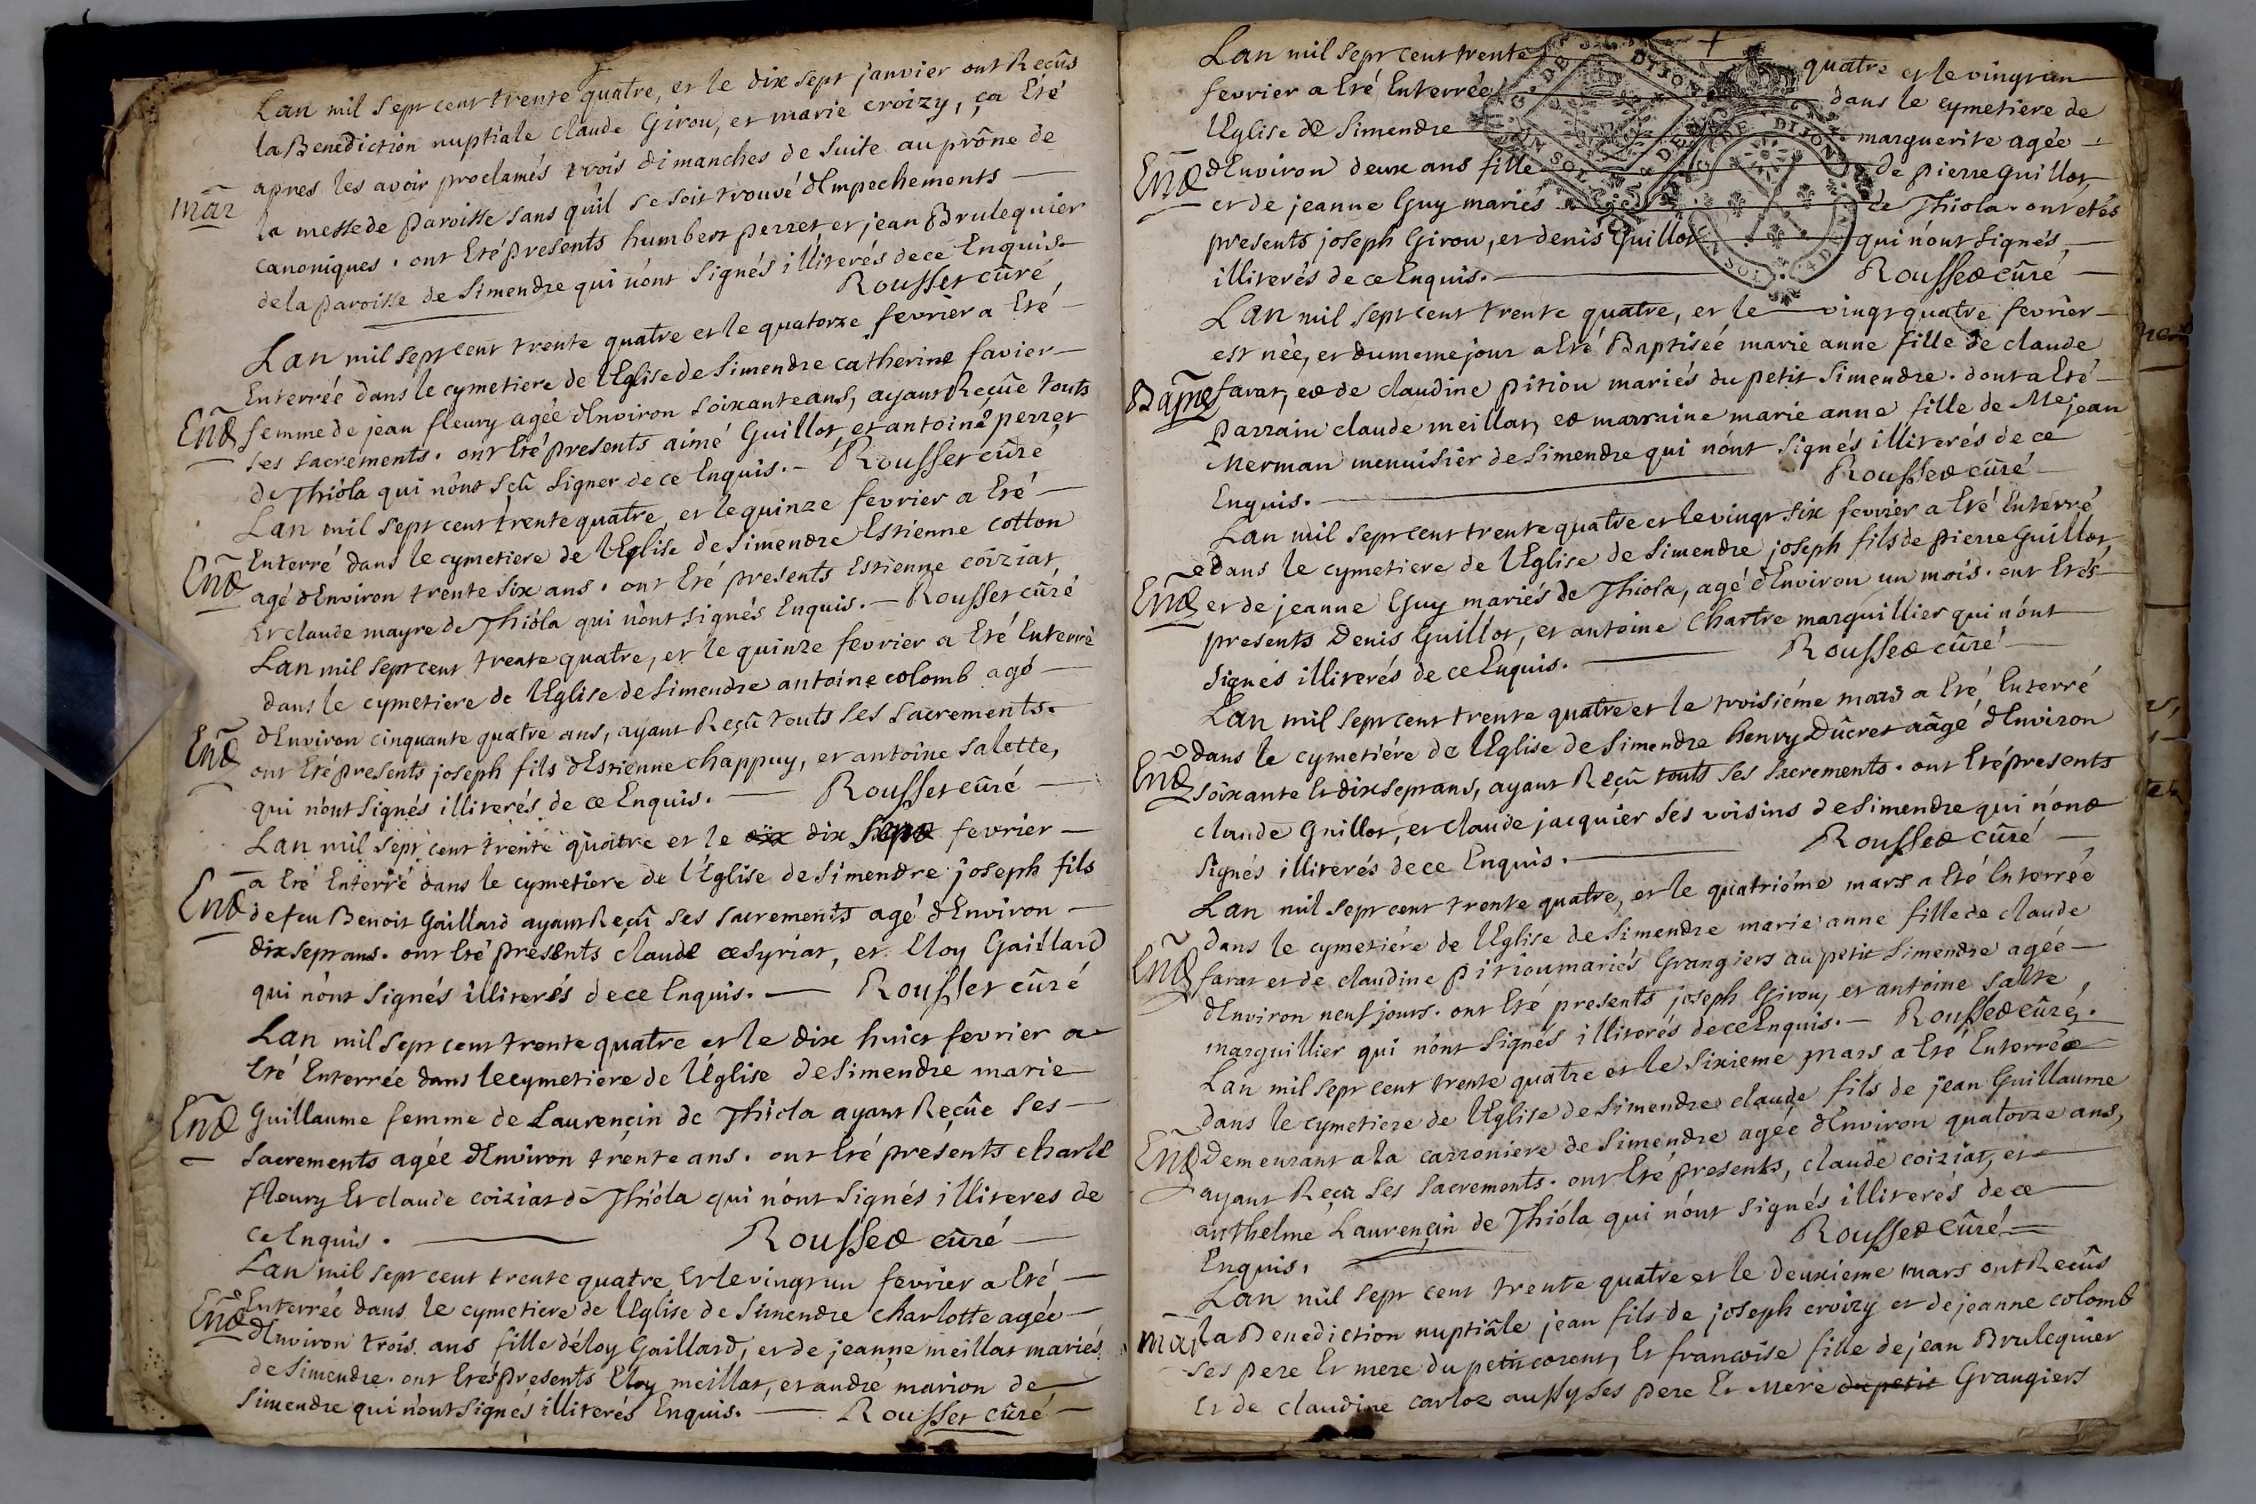 Lan mil sept cent trente quatre, et le dix sept janvier ont Reçûs
la Benediction nuptiale claude Girou, et marie croizy, ça Eté
apres les avoir proclamés trois dimanches de suite au prône de
mar̃
la messe de paroisse sans qu'il se soit trouvé d'Empechements
canoniques. ont Eté presents humbert perret et jean Brulequier
de la paroisse de Simendre qui n'ont signés illiterés de ce Enquis.
Rousset cûré
Lan mil sept cent trente quatre et le quatorze fevrier a Eté
Enterrée dans le cymetiere de l'Eglise de Simendre catherine favier
Ent
femme de jean fleury agée d'Environ soixante ans, ayant Reçûe touts
ses sacrements. ont Eté presents aimé Guillot, et antoine perret
de Thiola qui n'ont sçû signer de ce Enquis. Rousset cûré
Lan mil sept cent trente quatre et le quinze fevrier a Eté
Enterré dans le cymetiere de l'Eglise de Simendre Estienne cotton
Ent
agé d'Environ trente six ans. ont Eté presents Estienne coiziat,
Et claude mayre de Thiola qui n'ont signés Enquis. Rousset cûré
Lan mil sept cent trente quatre, et le quinze fevrier a Eté Enterré
dans le cymetiere de l'Eglise de Simendre antoine colomb agé
Ent
d'Environ cinquante quatre ans, ayant Reçû touts ses sacrements.
ont Eté presents joseph fils d'Estienne chappuy, et antoine salette,
qui n'ont signés illiterés de ce Enquis. Rousset cûré
Lan mil sept cent trente quatre et le dix dix sept fevrier
a Eté Enterré dans le cymetiere de l'Eglise de Simendre joseph fils
Ent
de feu Benoit Gaillard ayant Reçû ses sacrements agé d'Environ
dix sept ans. ont Eté presents claude cesyriat, et Eloy Gaillard
qui n'ont signés illiterés de ce Enquis. Rousset cûré
Lan mil sept cent trente quatre et le dix huict fevrier a
Eté Enterrée dans le cymetiere de l'Eglise de Simendre marie
Ent
Guillaume femme de Laurençin de Thiola ayant Reçûe ses
sacrements agée d'Environ trente ans. ont Eté presents charle
fleury Et claude coiziat de Thiola qui n'ont signés illiteres de
ce Enquis. Rousset cûré
Lan mil sept cent trente quatre Et le vingt un fevrier a Eté
Enterrée dans le cymetiere de l'Eglise de Simendre charlotte agée
Ent
d'Environ trois ans fille d'éloy Gaillard, et de jeanne meillat mariés
de Simendre. ont Etés presents Eloy meillat, et andre marion de
Simendre qui n'ont signés illiterés Enquis. Rousset cûré
Lan mil sept cent trente quatre et le vingt un
fevrier a Eté Enterrée dans le cymetiere de
l'Eglise de Simendre marguerite agée
Ent
d'Environ deux ans fille de pierre guillot,
et de jeanne Guy mariés de Thiola. ont etés
presents joseph Girou, et denis Guillot qui n'ont signés
illiterés de ce Enquis. Rousset cûré
Lan mil sept cent trente quatre, et le vingt quatre fevrier
est née, et du meme jour a Eté Baptiséé marie anne fille de claude
Bapme
farat, et de claudine pitiou mariés du petit Simendre. dont a Eté
parrain claude meillat, et marraine marie anne fille de Me jean
Merman menuisier de Simendre qui n'ont signés illiterés de ce
Enquis. Rousset cûré
Lan mil sept cent trente quatre et le vingt six fevrier a Eté Enterré
dans le cymetiere de l'Eglise de Simendre joseph fils de pierre Guillot,
Ent
et de jeanne Guy mariés de Thiola, agé d'Environ un mois. ont Etés
presents Denis Guillot, et antoine Chartre marguillier qui n'ont
signés illiterés de ce Enquis. Rousset cûré
Lan mil sept cent trente quatre et le troisiéme mars a Eté Enterré
dans le cymetiére de l'Eglise de Simendre henry Ducret aâgé d'Environ
Ent
soixante Et dix sept ans, ayant Reçû touts ses sacrements. ont Eté presents
claude Guillot, et claude jacquier ses voisins de Simendre qui n'ont
signés illiterés de ce Enquis. Rousset cûré
Lan mil sept cent trente quatre, et le quatriéme mars a Eté Enterréé
dans le cymetiére de l'Eglise de Simendre marie anne fille de claude
Ent
farat et de claudine pitiou mariés Grangiers au petit Simendre agée
d'Environ neuf jours. ont Eté presents joseph Girou, et antoine salte,
marguillier qui n'ont signés illiterés de ce Enquis. Rousset cûré.
Lan mil sept cent trente quatre et le sixieme mars a Eté Enterrée
dans le cymetiere de l'Eglise de Simendre claude fils de jean Guillaume
Ent
demeurant a la carroniere de Simendre agéé d'Environ quatorze ans,
ayant Reçu ses sacrements. ont Eté presents, claude coiziat, et
anthelme Laurençin de Thiola qui n'ont signés illiterés de ce
Enquis, Rousset Cûré
Lan mil sept cent trente quatre et le deuxieme mars ont Recûs
mar
la Benediction nuptiâle jean fils de joseph croizy et de jeanne colomb
ses pere Et mere du petit corent, Et francoise fille de jean Brulequier
Et de claudine carloz aussy ses pere Et Mere du petit Grangiers